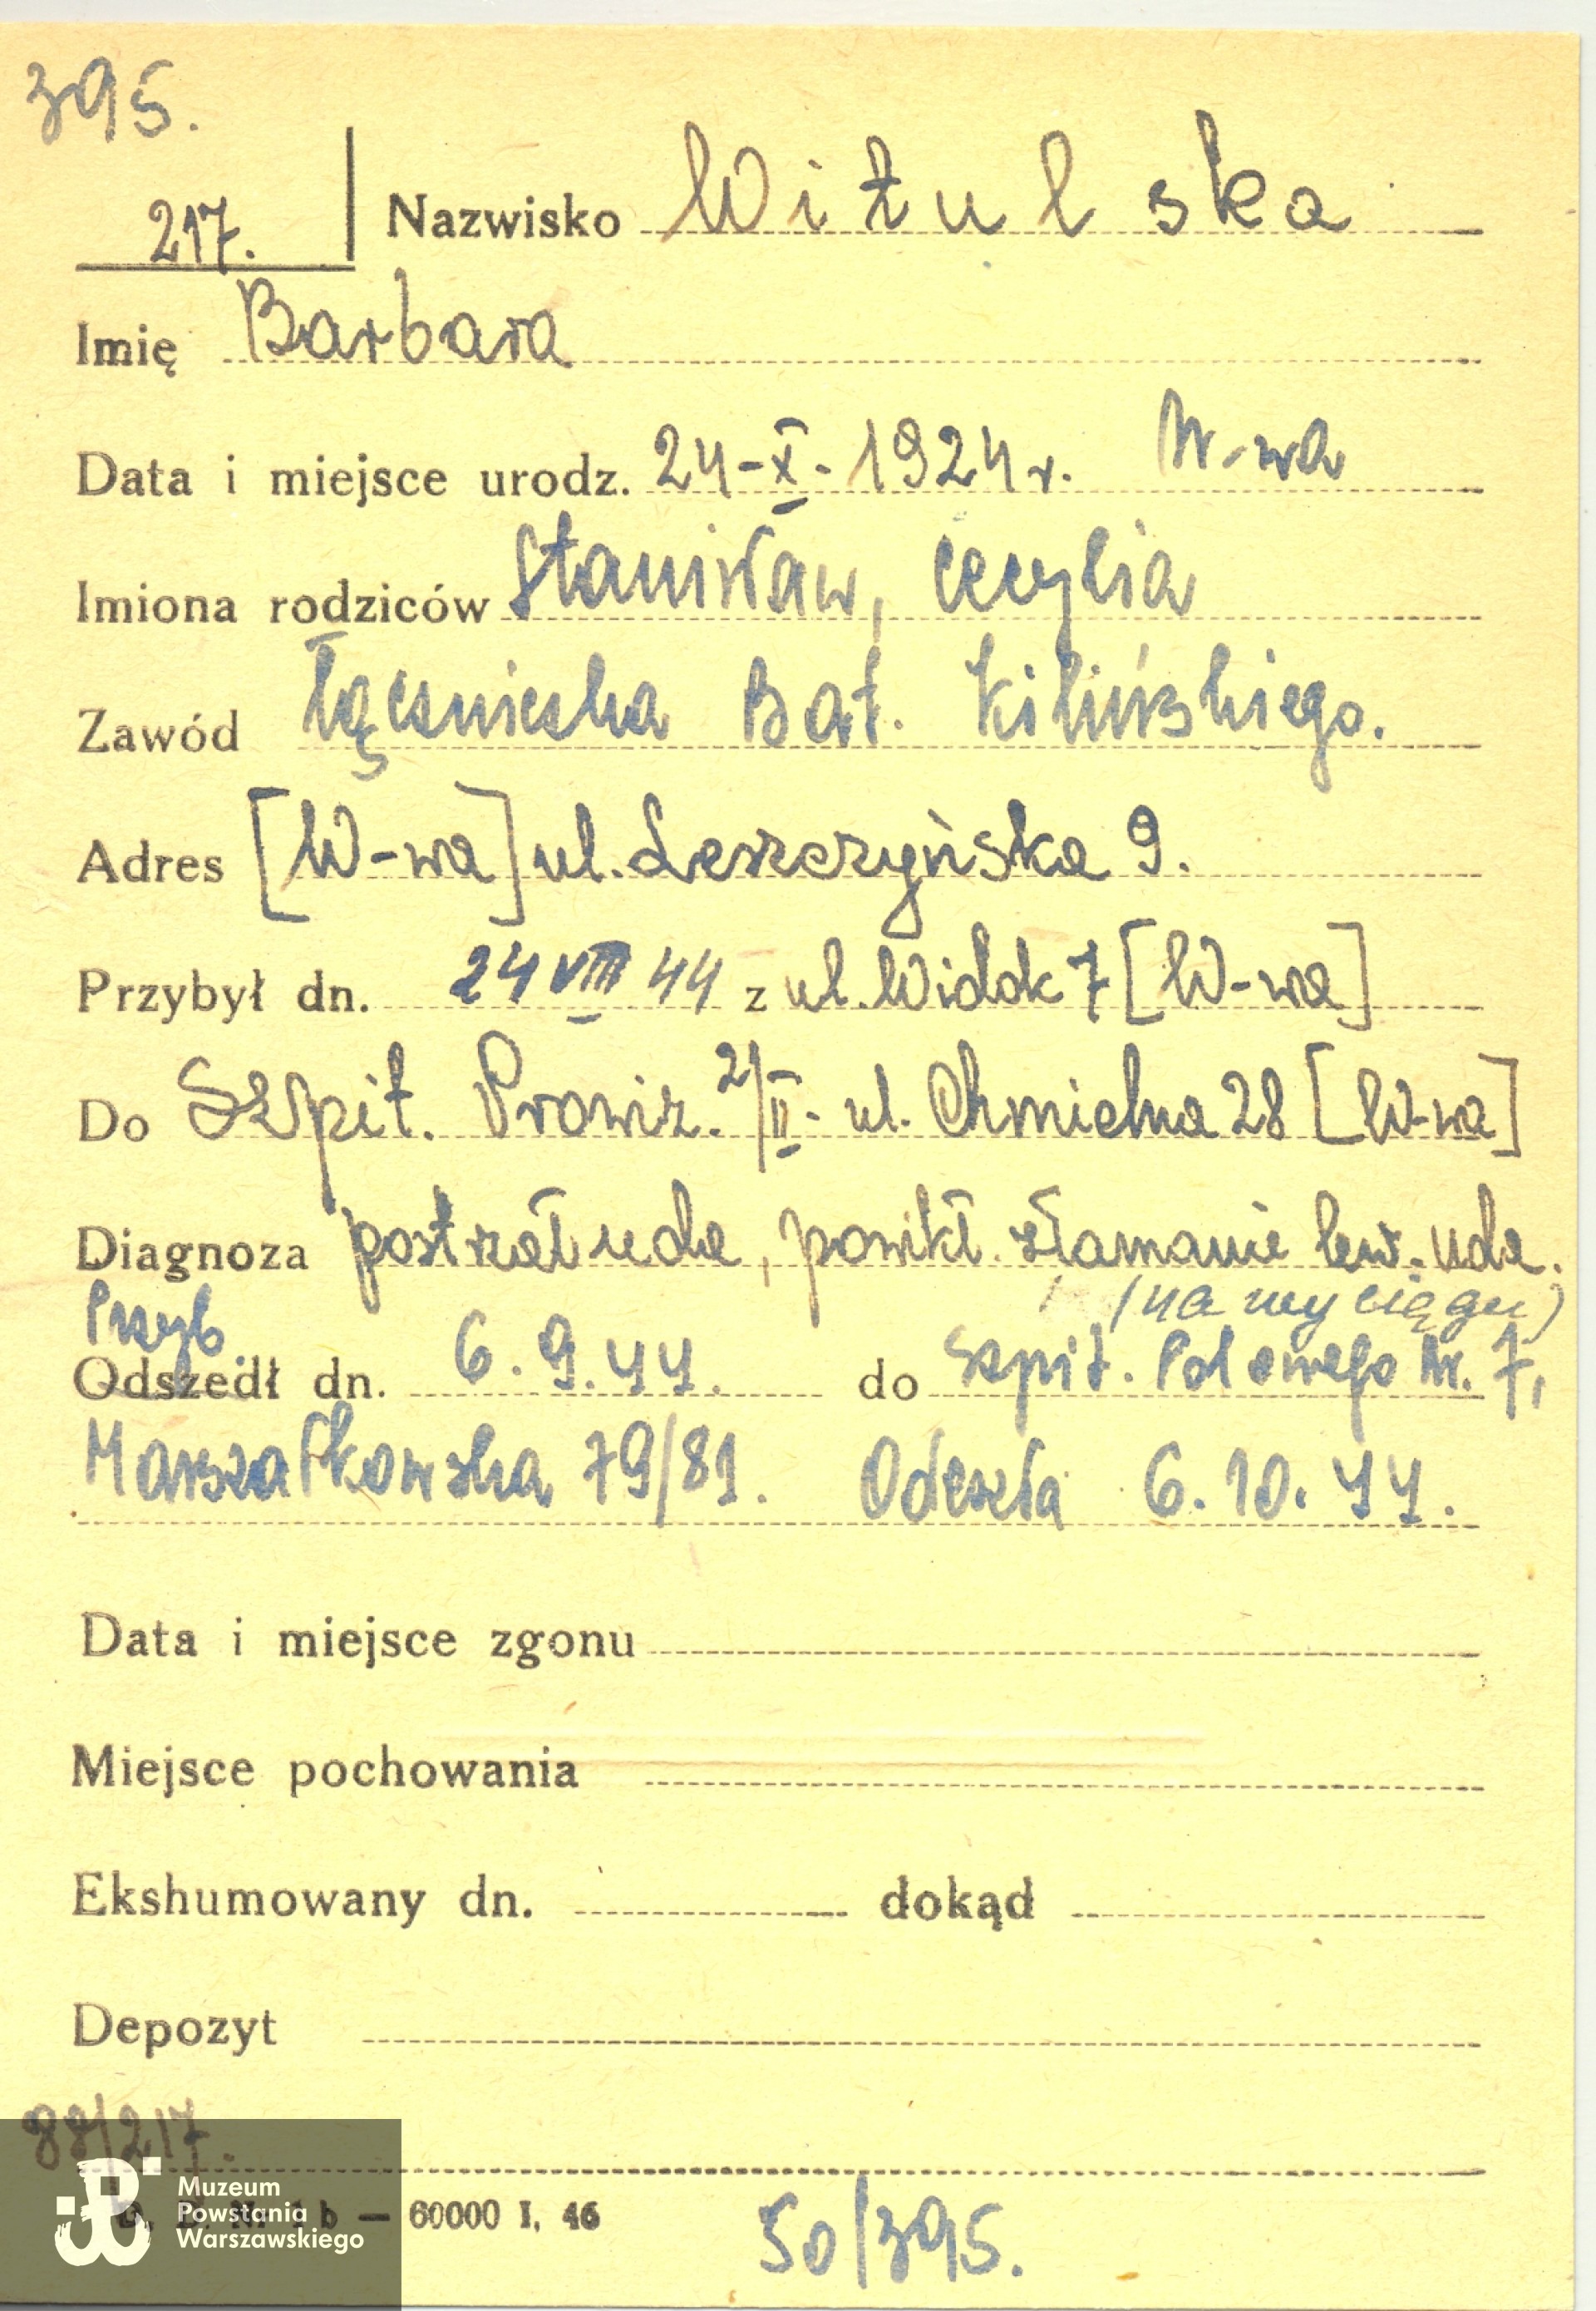 395.
217. Nazwisko Witulska
Imię Barbara
Data i miejsce urodz. 24-X-1924 r. W-wa
Imiona rodziców Stanisław, Cecylia
Zawód Łączniczka Bat. Kilińskiego.
Adres [W-wa] ul. Leszczyńska 9.
Przybył dn. 24 VIII 44 z ul. Widok 7 [W-wa]
Do Szpit. Prowiz. 2/II - ul. Chmielna 28 [W-wa]
Diagnoza postrzał uda, powikł. złamanie lew. uda.
(na wyciągu)
Przyb
Odszedł dn. 6.9.44. do Szpit. Polowego Nr. 7,
Marszałkowska 79/81. Odeszła 6.10.44.
Data i miejsce zgonu
Miejsce pochowania
Ekshumowany dn. dokąd
Depozyt
88/217.
Nr 1 b — 60000 I. 46
50/395.
Muzeum
Powstania
Warszawskiego